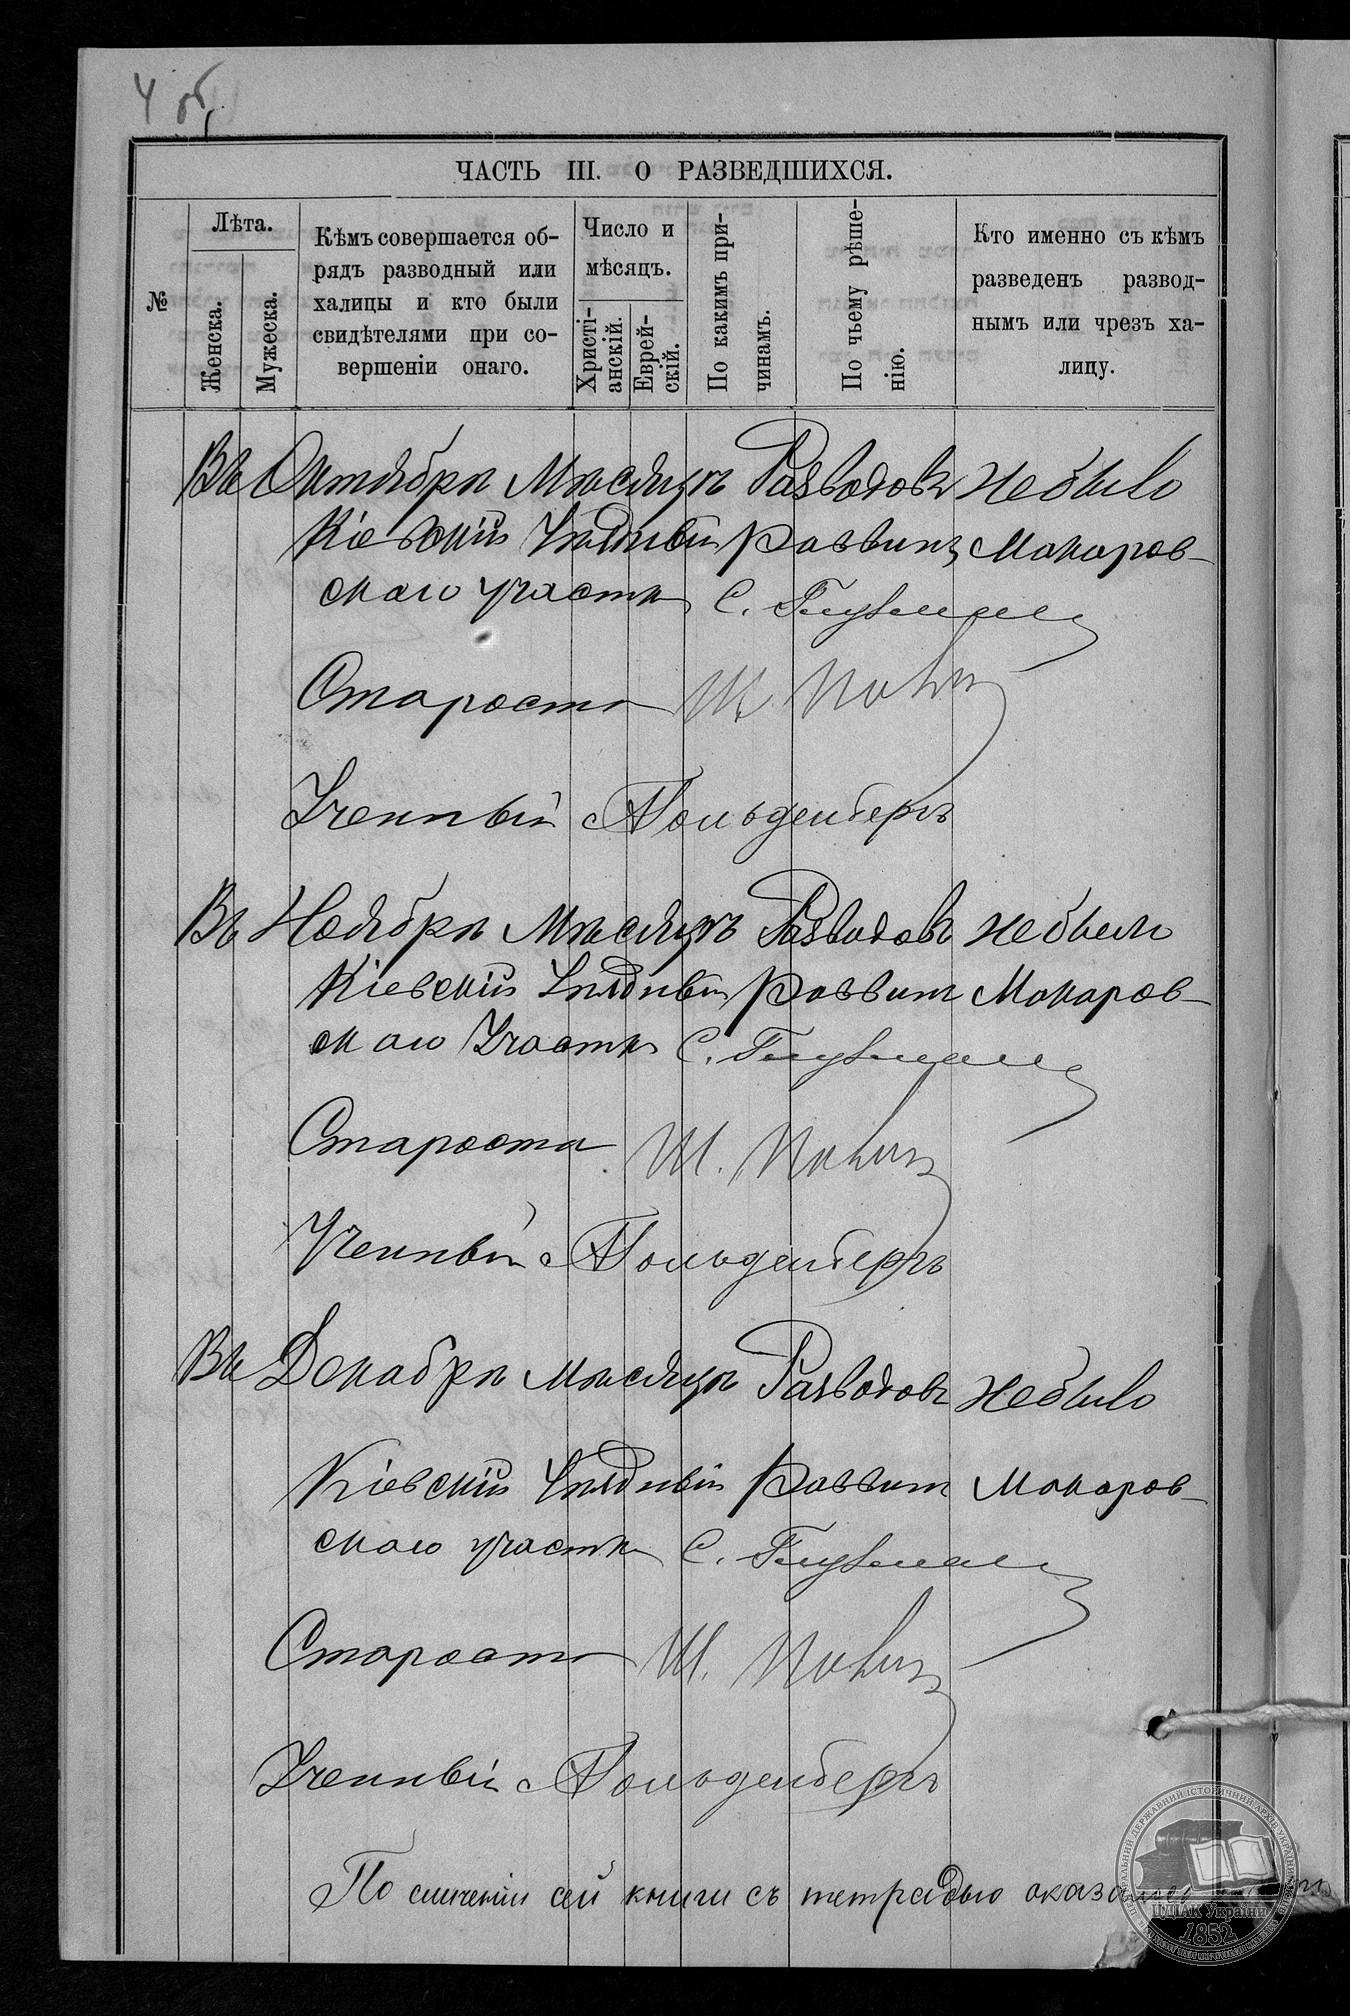 4 об,
ЧАСТЬ III. О РАЗВЕДШИХСЯ.
№
Лѣта.
Женска.
Мужеска.
Кѣмъ совершается об-
рядъ разводный или
халицы и кто были
свидѣтелями при со-
вершеніи онаго.
Число и
мѣсяцъ.
Христі-
анскій.
Еврей-
скій.
По какимъ при-
чинамъ.
По чьему рѣше-
нію.
Кто именно съ кѣмъ
разведенъ развод-
нымъ или чрезъ ха-
лицу.
Въ Октябрѣ Мѣсяцѣ Разводовъ небыло
Кіевскій Уѣздный Раввинъ Макаров-
скаго участка С. Глузманъ
Староста Ш.
Ученный Гольденбергъ
Въ Ноябрѣ Мѣсяцѣ Разводовъ небыло
Кіевскій Уѣздный Раввинъ Макаров-
скаго Участка С. Глузманъ
Староста Ш.
Ученный Гольденбергъ
Въ Декабрѣ мѣсяцѣ Разводовъ небыло
Кіевскій Уѣздный Раввинъ Макаров-
скаго участка С. Глузманъ
Староста Ш.
Ученный Гольденбергъ
По сличеніи сей книги съ тетрадью
ЦЕНТРАЛЬНИЙ ДЕРЖАВНИЙ ІСТОРИЧНИЙ АРХІВ УКРАЇНИ
ЦДІАК України
1852